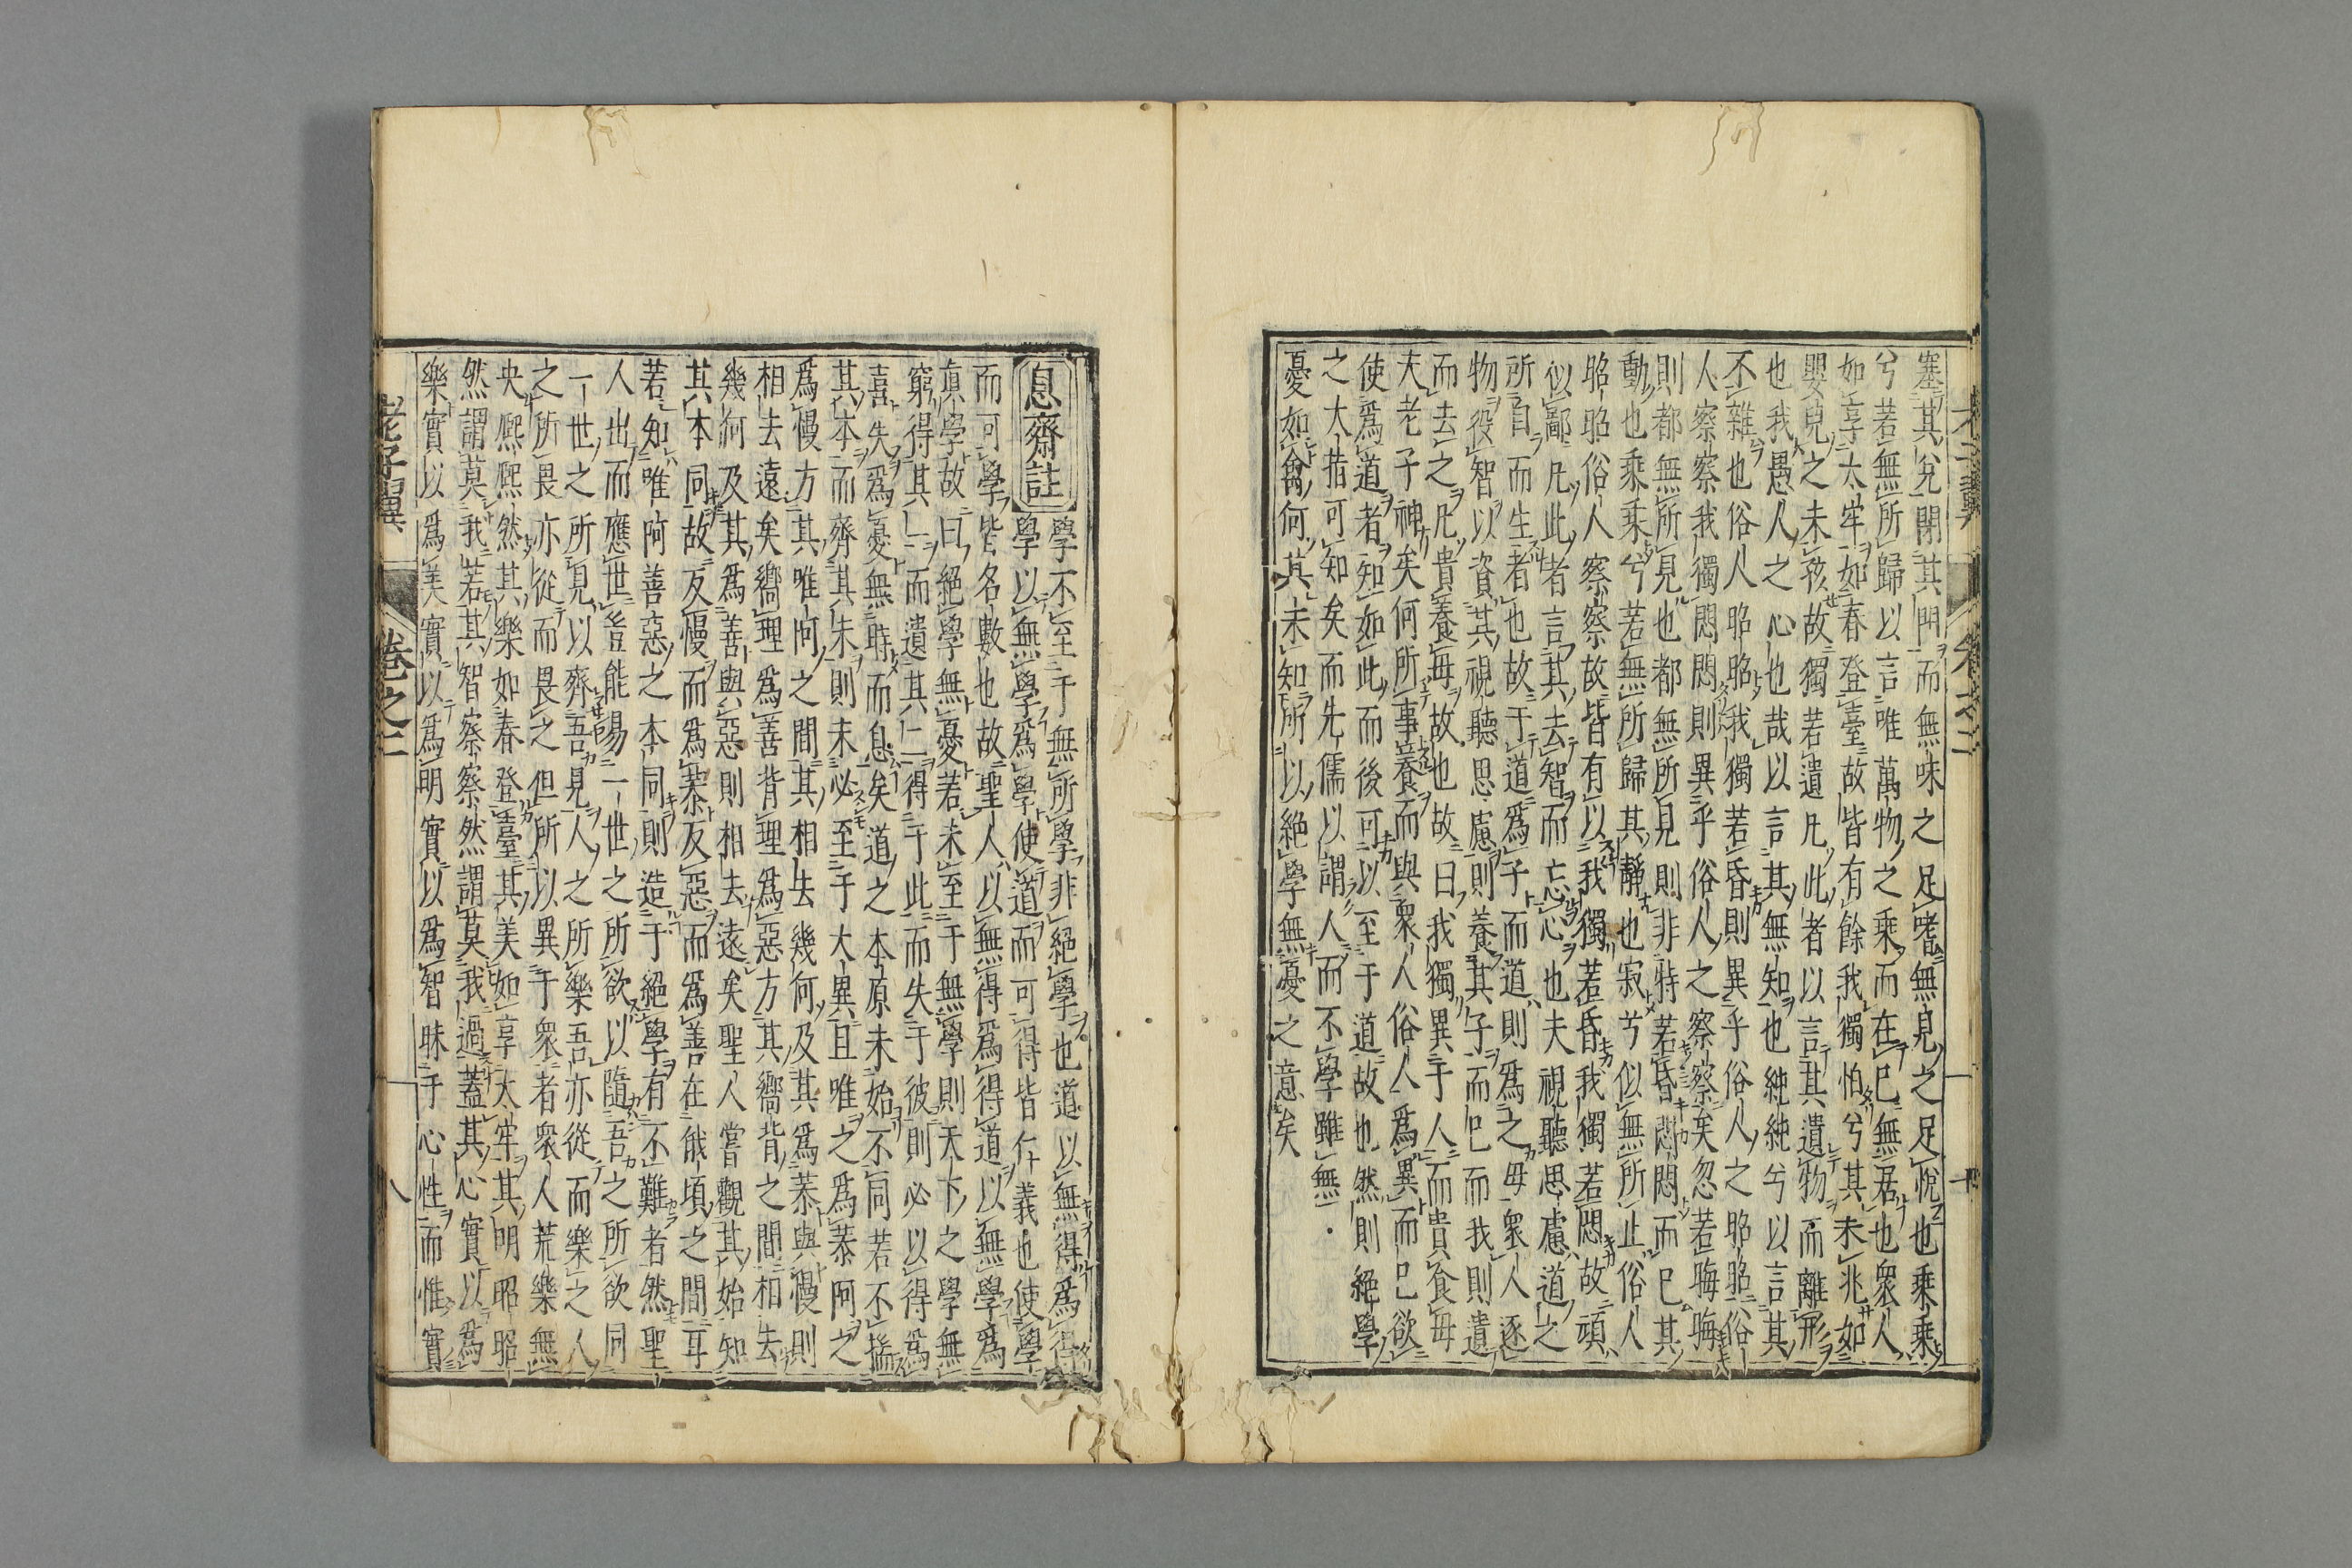 塞其兌閉其門而無味之足嗜無見之足悅也乘乘
兮若無所歸以言唯萬物之乘而在已無居也衆人
如享太牢如春登臺故皆有餘我獨怕兮其未兆如
嬰兒之未孩故獨若遺凡此者以言其遺物而離形
也我愚人之心也哉以言其無知也純純兮以言其
不雜也俗人昭昭我獨若昏則異乎俗人之昭昭俗
人察察我獨悶悶則異乎俗人之察察矣忽若晦晦
則都無所見也都無所見則非特若昏悶悶而已其
動也乘乘兮若無所歸其靜也寂兮似無所止俗人
昭昭俗人察察故皆有以我獨若昏我獨若悶故頑
似鄙凡此者言其去智而忘心也夫視聽思慮道之
所自而生者也故于道爲子而道則爲之母衆人逐
物役智以資其視聽思慮則養其子而已而我則遺
而去之凡貴養母故也故曰我獨異于人而貴食母
夫老子神矣何所事養而與衆人俗人爲異而已欲
使爲道者知如此而後可以至于道故也然則絕學
之大指可知矣而先儒以謂人而不學雖無
憂如禽何其未知所以絕學無憂之意矣
息齋註 學不至于無所學非絕學也道以無得爲得
學以無學爲學使道而可得皆仁義也使學
而可學皆名數也故聖人以無得爲得道以無學爲
真學故曰絕學無憂若未至于無學則天下之學無
窮得其一而遺其二得于此而失于彼則必以得爲
喜失爲憂無時而息矣道之本原未始不同若不揣
其本而齊其末則未必至于大異且唯之爲恭阿之
爲慢方其唯阿之間其相去幾何及其爲恭與慢則
相去遠矣嚮理爲善背理爲惡方其嚮背之間相去
幾何及其爲善與惡則相去遠矣聖人嘗觀其始知
其本同故反慢而爲恭反惡而爲善在俄頃之間耳
若知唯阿善惡之本同則造于絕學有不難者然聖
人出而應世豈能易一世之所欲以隨吾之所欲同
一世之所見以齊吾見人之所樂吾亦從而樂之人
之所畏亦從而畏之但所以異于衆者衆人荒樂無
央熙熙然其樂如春登臺其美如享太牢其明昭昭
然謂莫我若其智察察然謂莫我過蓋其心實以爲
樂實以爲美實以爲明實以爲智昧于心性而惟實
老子翼 卷之二 八